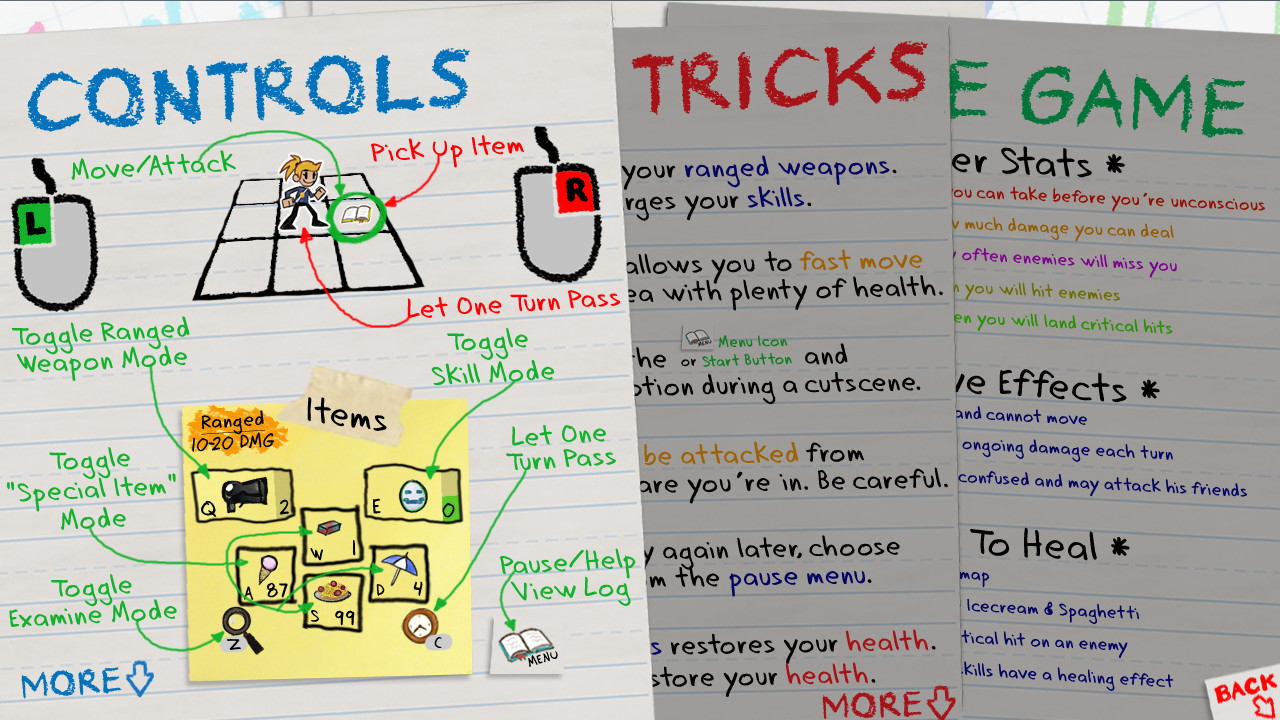 CONTROLS
Move/Attack
Pick Up Item
L
R
Let One Turn Pass
Toggle Ranged
Weapon Mode
Toggle
Skill Mode
Items
Ranged
10-20 DMG
Let One
Turn Pass
Toggle
"Special Item"
Mode
Q 2
E 0
W 1
A 87
D 4
S 99
Toggle
Examine Mode
Z
C
Pause/Help
View Log
MENU
MORE
TRICKS
your ranged weapons.
rges your skills.
allows you to fast move
ea with plenty of health.
he
MENU
Menu Icon
or Start Button
and
otion during a cutscene.
be attacked from
are you're in. Be careful.
y again later, choose
m the pause menu.
s restores your health.
store your health.
MORE
E GAME
er Stats *
ou can take before you're unconscious
w much damage you can deal
y often enemies will miss you
n you will hit enemies
en you will land critical hits
ve Effects *
and cannot move
ongoing damage each turn
confused and may attack his friends
To Heal *
map
Icecream & Spaghetti
tical hit on an enemy
kills have a healing effect
BACK